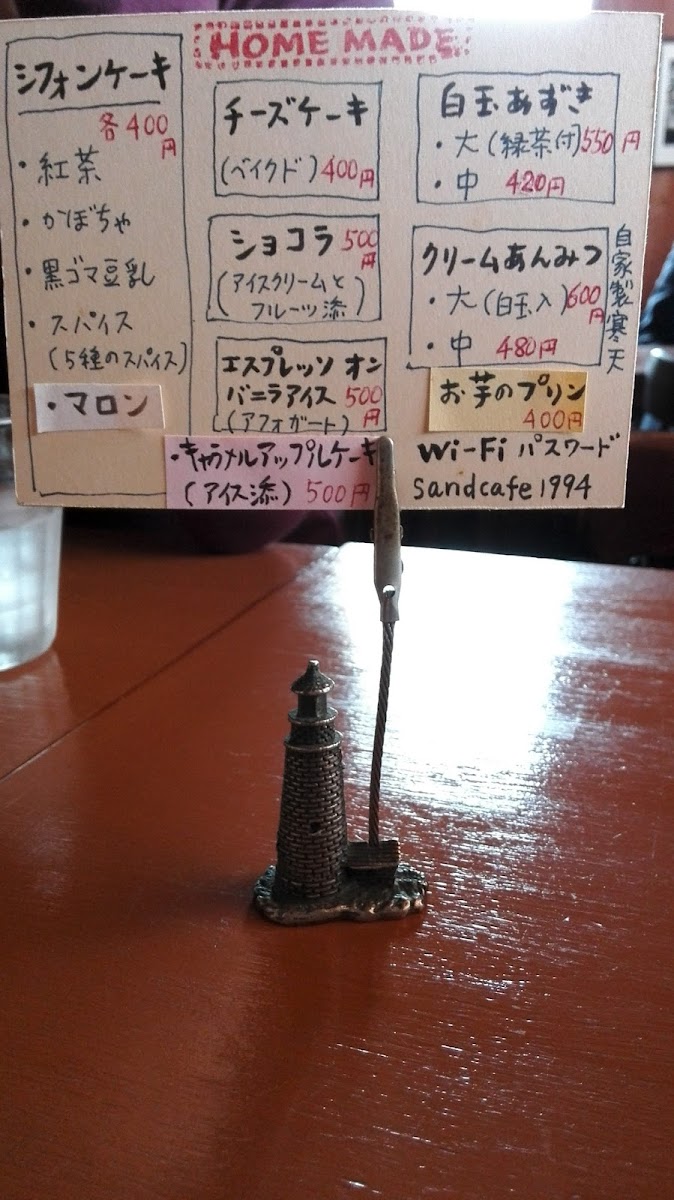 HOME MADE
シフォンケーキ
各400
円
・紅茶
・かぼちゃ
・黒ゴマ豆乳
・スパイス
(5種のスパイス)
・マロン
チーズケーキ
(ベイクド)400円
ショコラ 500
円
(アイスクリームと
フルーツ添)
エスプレッソ オン
バニラアイス 500
(アフォガート) 円
・キャラメルアップルケーキ
(アイス添) 500円
白玉あずき
・大(緑茶付)550円
・中 420円
クリームあんみつ
・大(白玉入)600
円
・中 480円
自家製寒天
お芋のプリン
400円
Wi-Fi パスワード
sandcafe1994